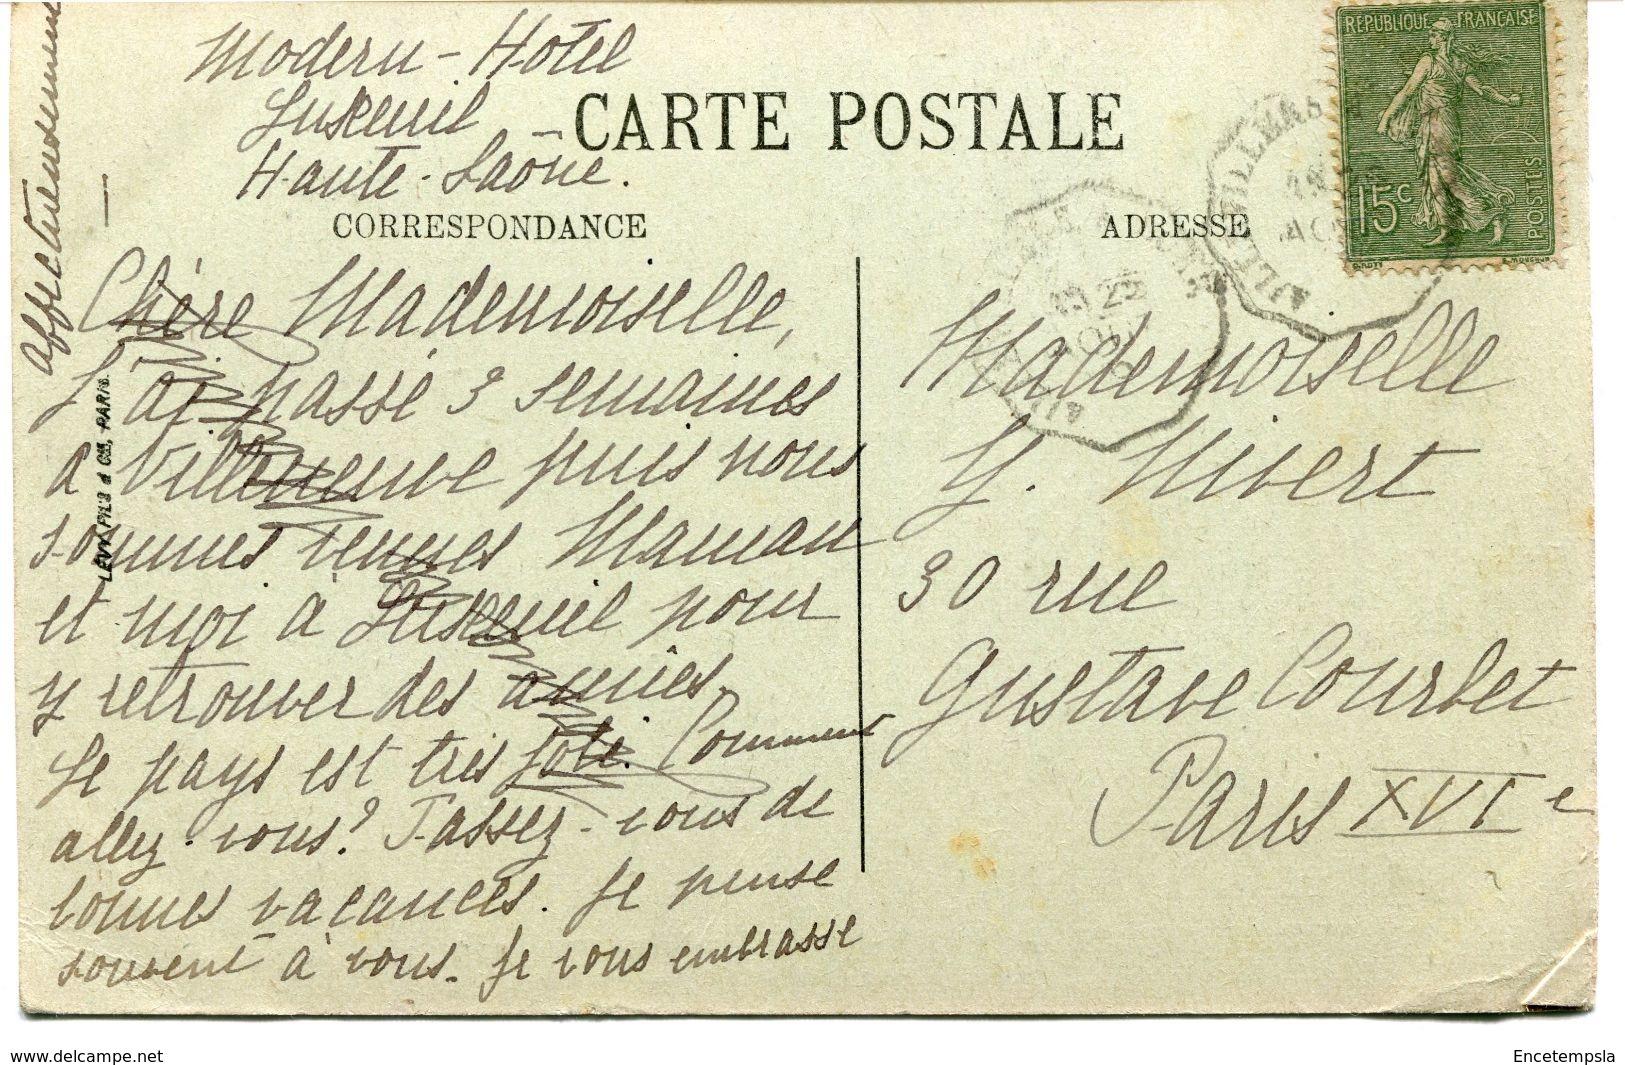 Modern-Hotel
Luxeuil
Haute-Saône.
CARTE POSTALE
CORRESPONDANCE
ADRESSE
RÉPUBLIQUE FRANÇAISE
15c
POSTES
Chère Mademoiselle,
J'ai passé 3 semaines
à Villeneuve puis nous
sommes venues Maman
et moi à Luxeuil pour
y retrouver des amies.
Le pays est très joli. Comment
allez-vous? Passez-vous de
bonnes vacances. Je pense
souvent à vous. Je vous embrasse
affectueusement
LEVY FILS & Cie, PARIS.
Mademoiselle
Y. Nivert
30 rue
Gustave Courbet
Paris XVIe
www.delcampe.net
Encetempsla